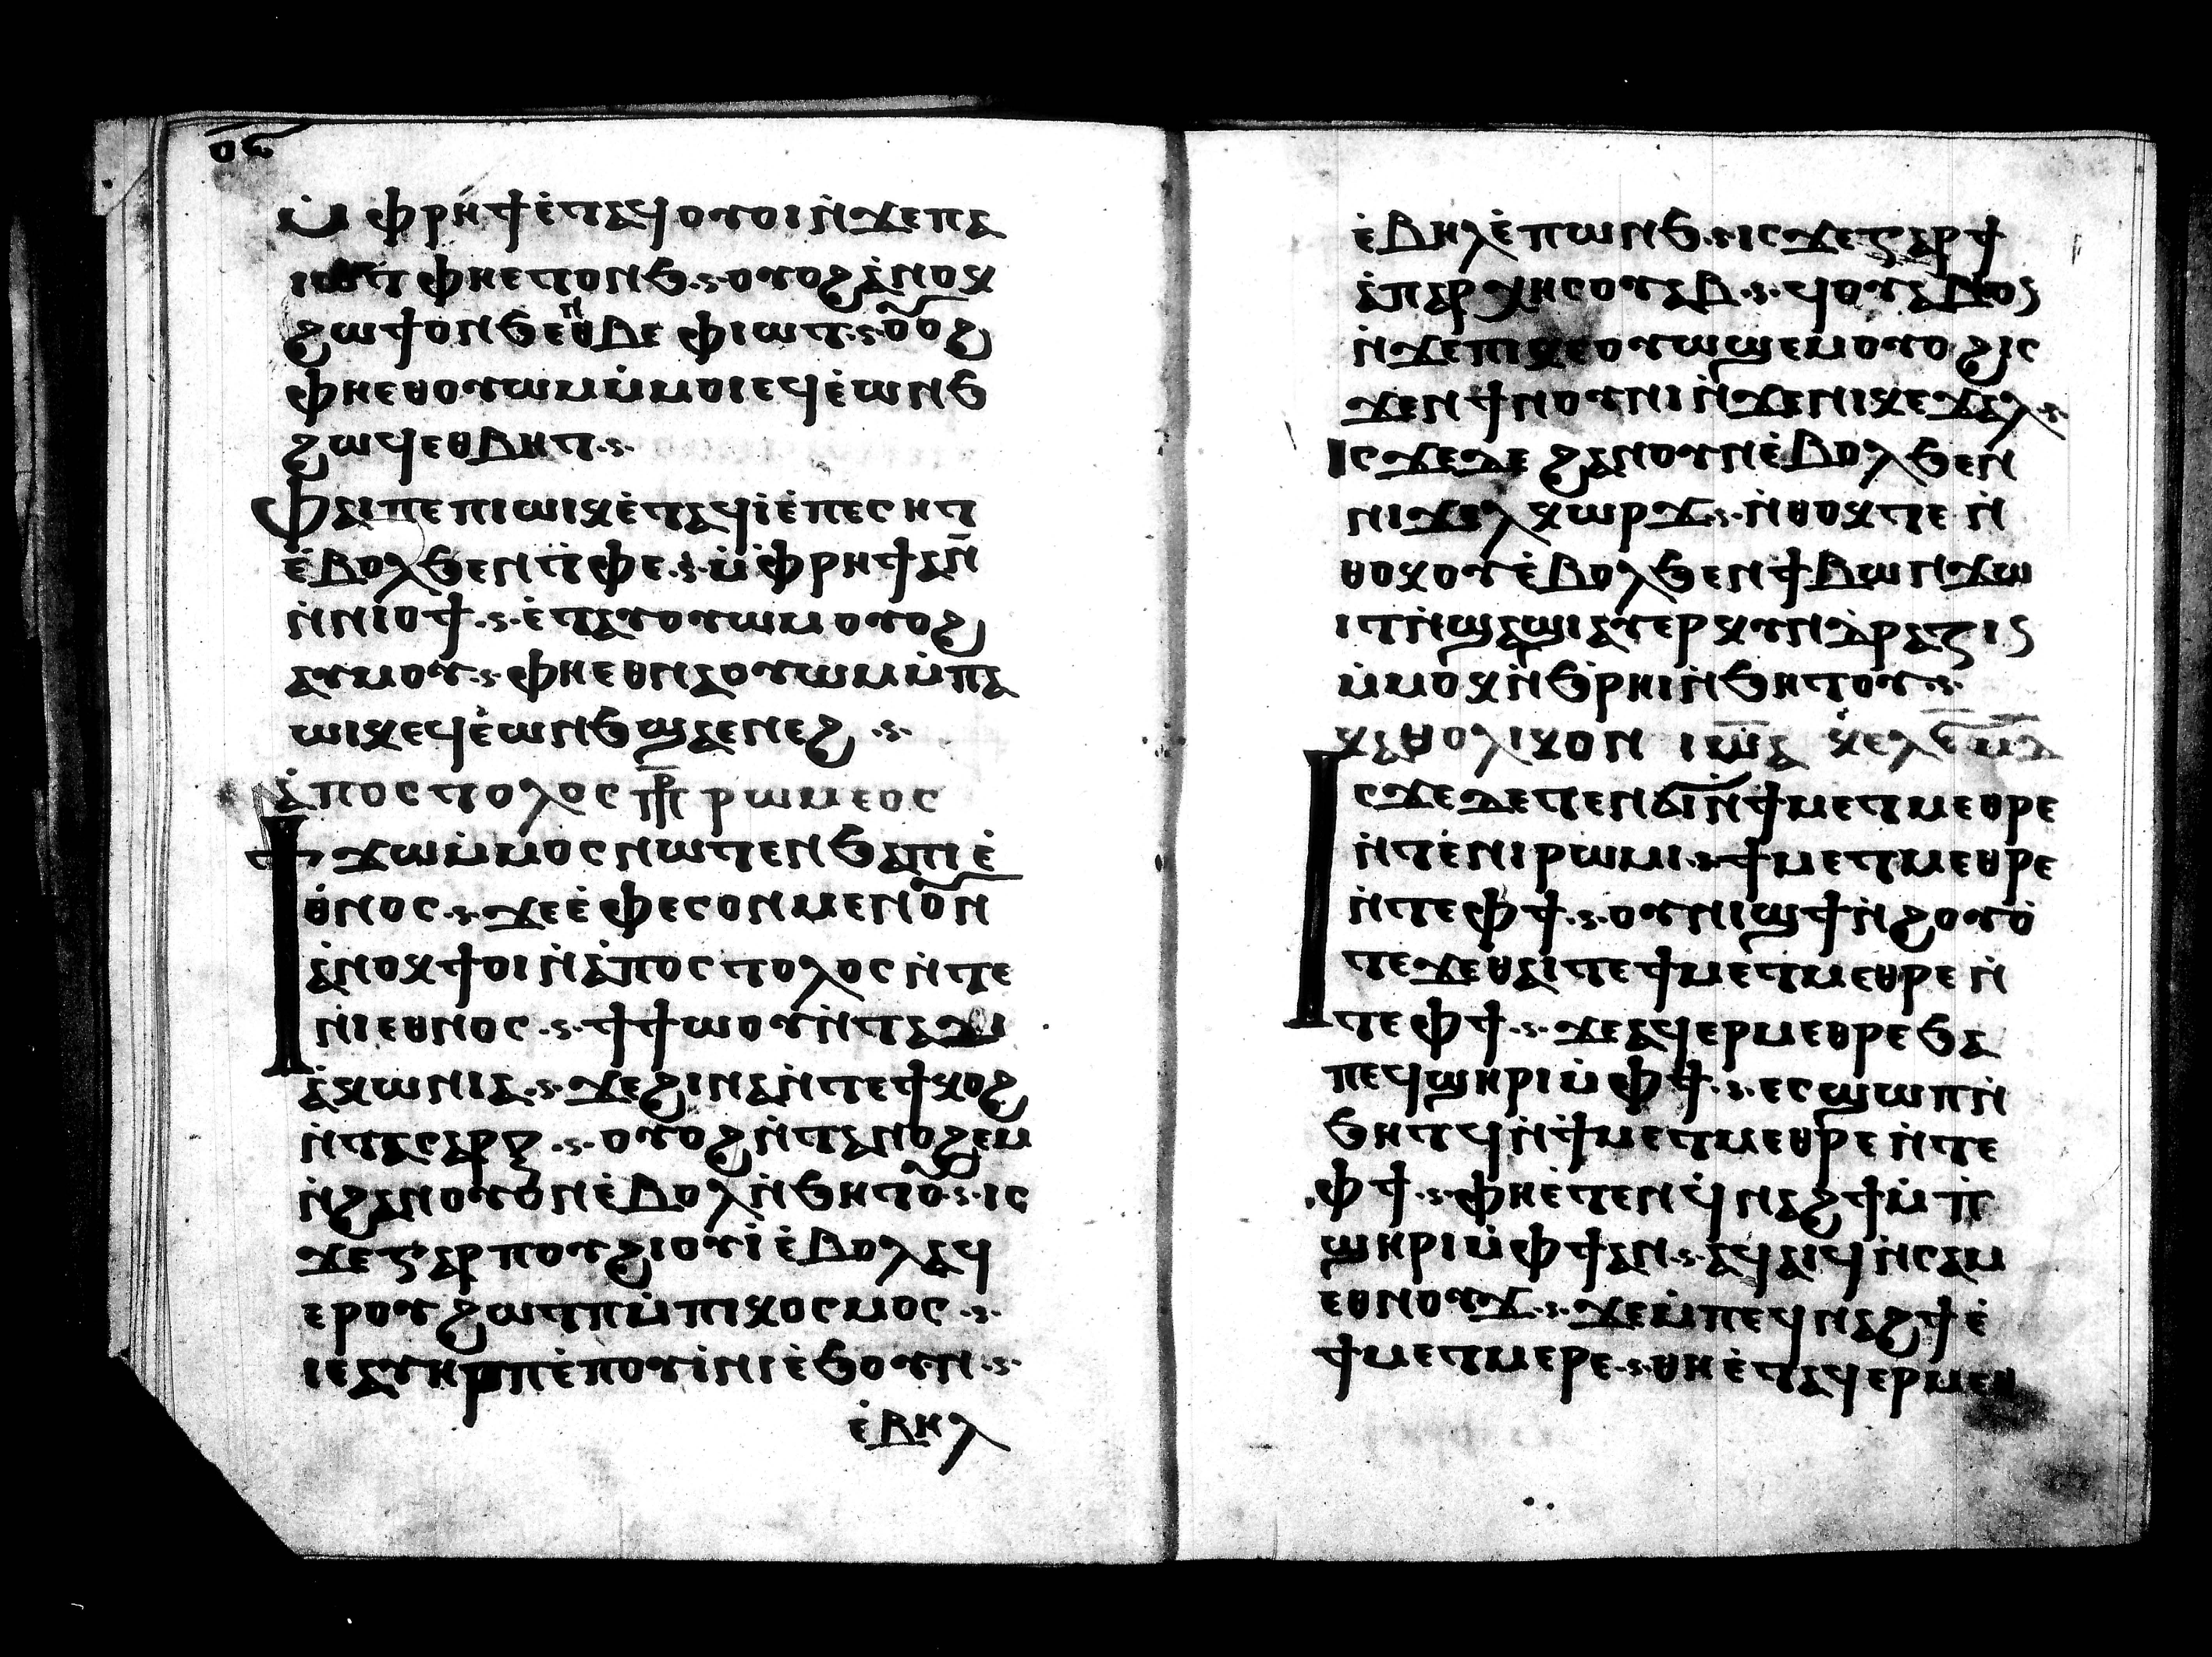 ⲟⲋ
ⲙ̀ⲫⲣⲏϯⲉ̀ⲧⲁϥⲟⲩⲟⲓⲛ̀ϫⲉⲡⲁ
ⲓⲱⲧⲫⲏⲉⲧⲟⲛϧ·ⲟⲩⲟϩⲁ̀ⲛⲟⲕ
ϩⲱϯⲟⲛϧⲉⲛⲑⲃⲉⲫⲓⲱⲧ·ⲟ̅ⲟϩ
ⲫⲏⲉⲑⲟⲩⲱⲙⲙ̀ⲙⲟⲓⲉϥⲉ̀ⲱⲛϧ
ϩⲱϥⲉⲑⲃⲏⲧ·
ⲫⲁⲓⲡⲉⲡⲓⲱⲓⲕⲉ̀ⲧⲁϥⲓ̀ⲉ̀ⲡⲉⲥⲏⲧ
ⲉ̀ⲃⲟⲗϧⲉⲛⲧ̀ⲫⲉ·ⲙ̀ⲫ̀ⲣⲏϯⲁⲛ
ⲛ̀ⲛⲓⲟϯ·ⲉ̀ⲧⲁⲩⲟⲩⲱⲙⲟⲩⲟϩ
ⲁⲩⲙⲟⲩ·ⲫⲏⲉⲑⲛⲁⲟⲩⲱⲙⲙ̀ⲡⲁ
ⲱⲓⲕⲉϥⲉ̀ⲱⲛϧϣⲁⲉⲛⲉϩ·
ⲁ̀ⲡⲟⲥⲧⲟⲗⲟⲥ ⲡⲣ ⲣⲱⲙⲉⲟⲥ
ϯϫⲱⲙ̀ⲙⲟⲥⲛⲱⲧⲉⲛϧⲁⲛⲓⲉ̀
ⲑⲛⲟⲥ·ϫⲉⲉ̀ⲫⲉⲥⲟⲛⲙⲉⲛⲟ̅ⲛ
ⲁ̀ⲛⲟⲕϯⲟⲓⲛ̀ⲁ̀ⲡⲟⲥⲧⲟⲗⲟⲥⲛ̀ⲧⲉ
ⲛⲓⲉⲑⲛⲟⲥ·ϯϯⲱⲟⲩⲛ̀ⲧⲁⲇⲓ
ⲁ̀ⲕⲱⲛⲓⲁ·ϫⲉϩⲓⲛⲁⲛ̀ⲧⲉϯⲭⲟϩ
ⲛ̀ⲧⲁⲥⲁⲣⲝ·ⲟⲩⲟϩⲛ̀ⲧⲁⲛⲟϩⲉⲙ
ⲛ̀ϩⲁⲛⲟⲩⲟⲛⲉ̀ⲃⲟⲗⲛ̀ϧⲏⲧⲟ̅·ⲓⲥ
ϫⲉⲅⲁⲣⲡⲟⲩϩⲓⲟⲩⲓ̀ⲉ̀ⲃⲟⲗⲁϥ
ⲉⲣⲟⲩϩⲱⲧⲡⲙ̀ⲡⲓⲕⲟⲥⲙⲟⲥ·
ⲓⲉⲁⲩⲏⲣⲡⲉ̀ⲡⲟⲩⲓ̀ⲛⲓⲉ̀ϧⲟⲩⲛ·
ⲉ̀ⲃⲏⲗ
ⲉ̀ⲃⲏⲗⲉ̀ⲡⲱⲛϧ·ⲓⲥϫⲉⲅⲁⲣϯ
ⲁ̀ⲡⲁⲣⲭⲏⲥⲟⲩⲁⲃ·ϥⲟⲩⲁⲃⲟⲛ
ⲛ̀ϫⲉⲡⲓⲕⲉⲟⲩⲱϣⲉⲙⲟⲩⲟϩⲓⲥ
ϫⲉⲛϯⲛⲟⲩⲛⲓⲛ̀ϫⲉⲛⲓⲕⲉϫⲁⲗ·
ⲓⲥϫⲉⲇⲉϩⲁⲛⲟⲩⲛⲉ̀ⲃⲟⲗϧⲉⲛ
ⲛⲓϫⲁⲗⲕⲱⲣϫ·ⲛ̀ⲑⲟⲕⲡⲉⲛ̀
ⲑⲟⲕⲟⲩⲉ̀ⲃⲟⲗϧⲉⲛϯⲃⲱⲛϫⲱ
ⲓⲧⲛ̀ϣⲁϣⲓⲁⲩⲉⲣⲕⲩⲛⲇⲣⲁⲍⲓⲛ
ⲙ̀ⲙⲟⲕⲛ̀ϧ̀ⲣⲏⲓⲛ̀ϧⲏⲧⲟⲩ·
ⲕⲁⲑⲟⲗⲓⲕⲟⲛ ⲓⲱ̅ⲁ ⲕⲉⲗⲉ̅ⲙ̅ⲁ̅
ⲓⲥϫⲉⲇⲉⲧⲉⲛϭⲓⲛ̀ϯⲙⲉⲧⲙⲉⲑⲣⲉ
ⲛ̀ⲧⲉ̀ⲛⲓⲣⲱⲙⲓ·ϯⲙⲉⲧⲙⲉⲑⲣⲉ
ⲛ̀ⲧⲉⲫϯ·ⲟⲩⲛⲓϣϯⲛ̀ϩⲟⲩⲟ̀
ⲧⲉϫⲉⲑⲁⲓⲧⲉϯⲙⲉⲧⲙⲉⲑⲣⲉⲛ̀
ⲧⲉⲫϯ·ϫⲉⲁϥⲉⲣⲙⲉⲑⲣⲉϧⲁ
ⲡⲉϥϣⲏⲣⲓⲙ̀ⲫϯ·ⲉⲥϣⲱⲡⲛ̀
ϧⲏⲧϥⲛ̀ϯⲙⲉⲧⲙⲉⲑⲣⲉⲛ̀ⲧⲉ
ⲫϯ·ⲫⲏⲉ̀ⲧⲉⲛϥ̀ⲛⲁϩϯⲙ̀ⲡ̀
ϣⲏⲣⲓⲙ̀ⲫϯⲁⲛ·ⲁϥⲁⲓϥⲛ̀ⲥⲁⲙ
ⲉⲑⲛⲟⲩϫ·ϫⲉⲙ̀ⲡⲉϥⲛⲁϩϯⲉ̀
ϯⲙⲉⲧⲙⲉⲣⲉ·ⲑⲏⲉ̀ⲧⲁϥⲉⲣⲙⲉⲑ